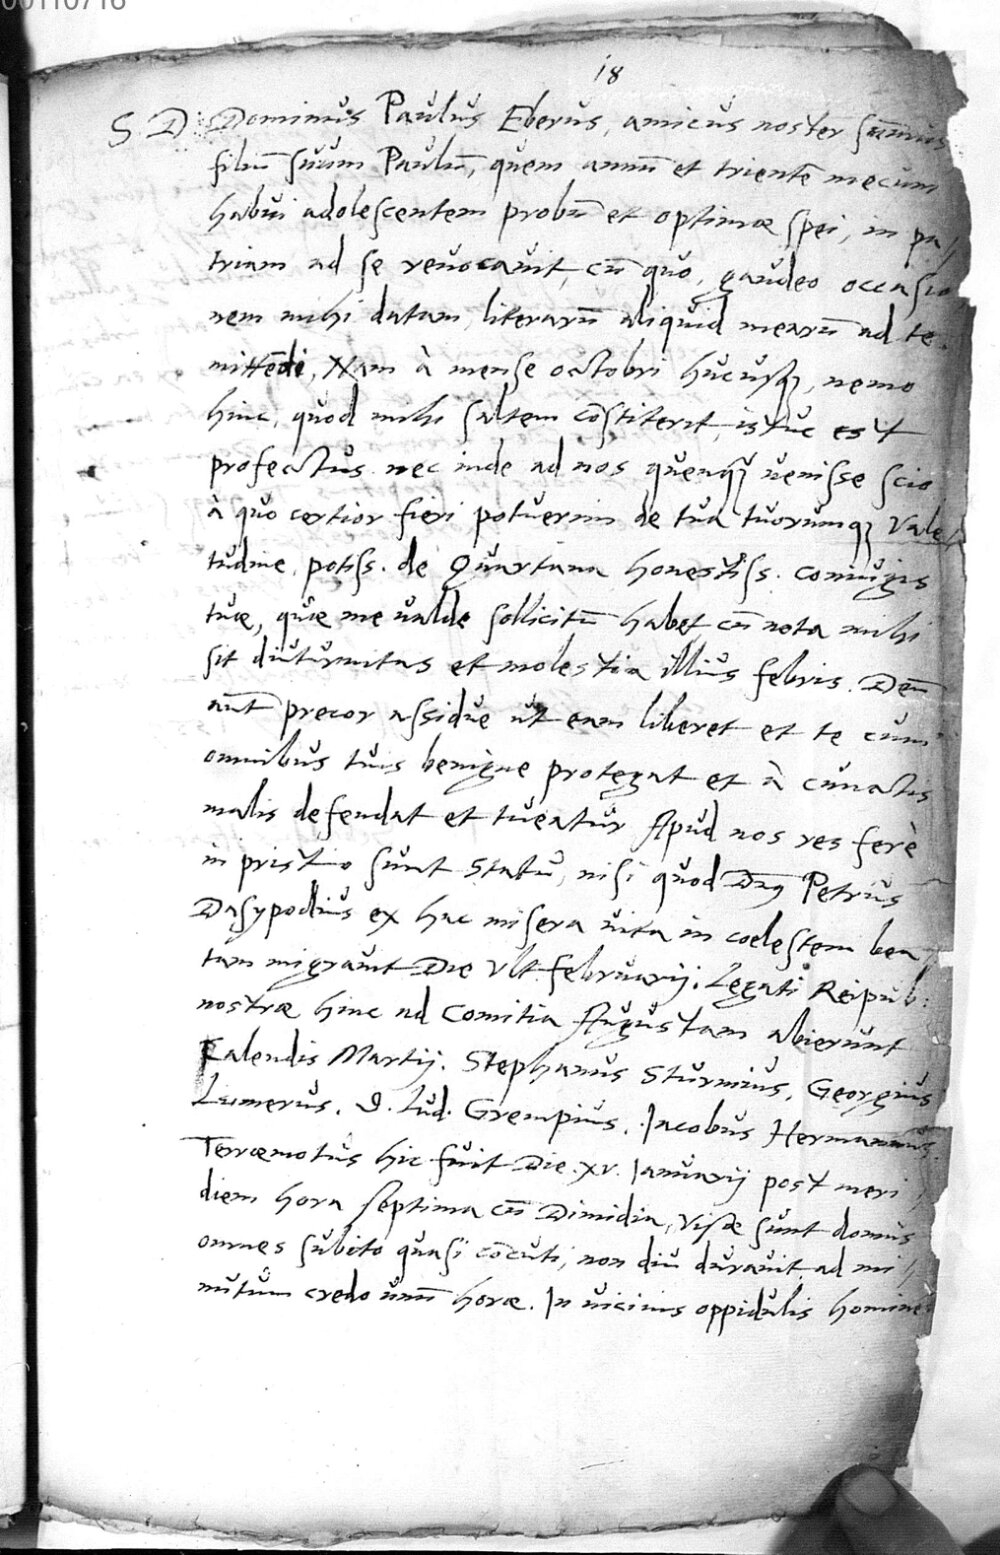 00110716
18
S D. Dominus Paulus Eberus, amicus noster sum̄us
filiū suum Paulū, quem annū et trientē mecum
habui adolescentem probū et optimæ spei, in pa/
triam ad se reuocauit, cū quo, gaudeo occasio
nem mihi datam, literarū aliquid mearū ad te
mittēdi, Nam à mense octobri hucusq₃, nemo
hinc, quod mihi saltem cōstiterit, istuc est
profectus nec inde ad nos quenq̄₃ uenisse scio
à quo certior fieri potuerim de tua tuorumq₃ Vale/
tudine, potiss. de Quartana honestiss. coniugis
tuæ, quæ me ualde sollicitū habet cū nota mihi
sit diuturnitas et molestia illius febris. Deū
aūt precor assidue ut eam liberet et te cum
omnibus tuis benigne protegat et à cunctis
malis defendat et tueatur Apud nos res ferè
in pristino sunt statu, nisi quod Dn̄s Petrus
Dasypodius ex hac misera uita in coelestem bea/
tam migrauit Die Vlt. februarij. Legati Reipub:
nostræ hinc ad Comitia Augustam abierunt
Calendis Martij. Stephanus Sturmius, Georgius
Lumerus. D. Lud. Grempius. Jacobus Hermannus.
Terræmotus hic fuit Die .xv. Januarij post meri/
diem hora septima cū Dimidia, Visæ sunt domus
omnes subito quasi cōcuti, non diu durauit ad mi/
nutum credo unū horæ. In uicinis oppidulis homines